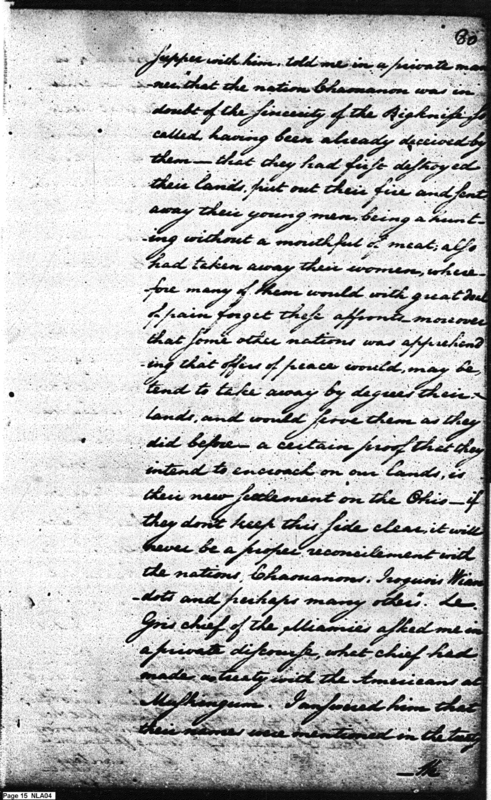 80
supper with him, told me in a private man
-ner "that the nation Chamanon was in
doubt of the sincerity of the Bigknife, so
called, having been already deceived by
them — that they had first destroyed
their lands, put out their fire and sent
away their young men, being a hunt-
-ing without a mouthful of meat; also
had taken away their women, where-
fore many of them would with great deal
of pain forget these affronts, moreover
that some other nations was apprehend
-ing that offers of peace would, may be,
tend to take away by degrees their
lands, and would serve them as they
did before — a certain proof that they
intend to encroach on our lands, is
their new settlement on the Ohio — if
they dont keep this side clear, it will
never be a proper reconcilement with
the nations, Chamanons, Iroquois Wian
-dots and perhaps many others". Le
Gris chief of the Miamies asked me in
a private discourse, what chief had
made a treaty with the Americans at
Muskingum. I answered him that
their names were mentioned in the treaty
Page 15 NLA04